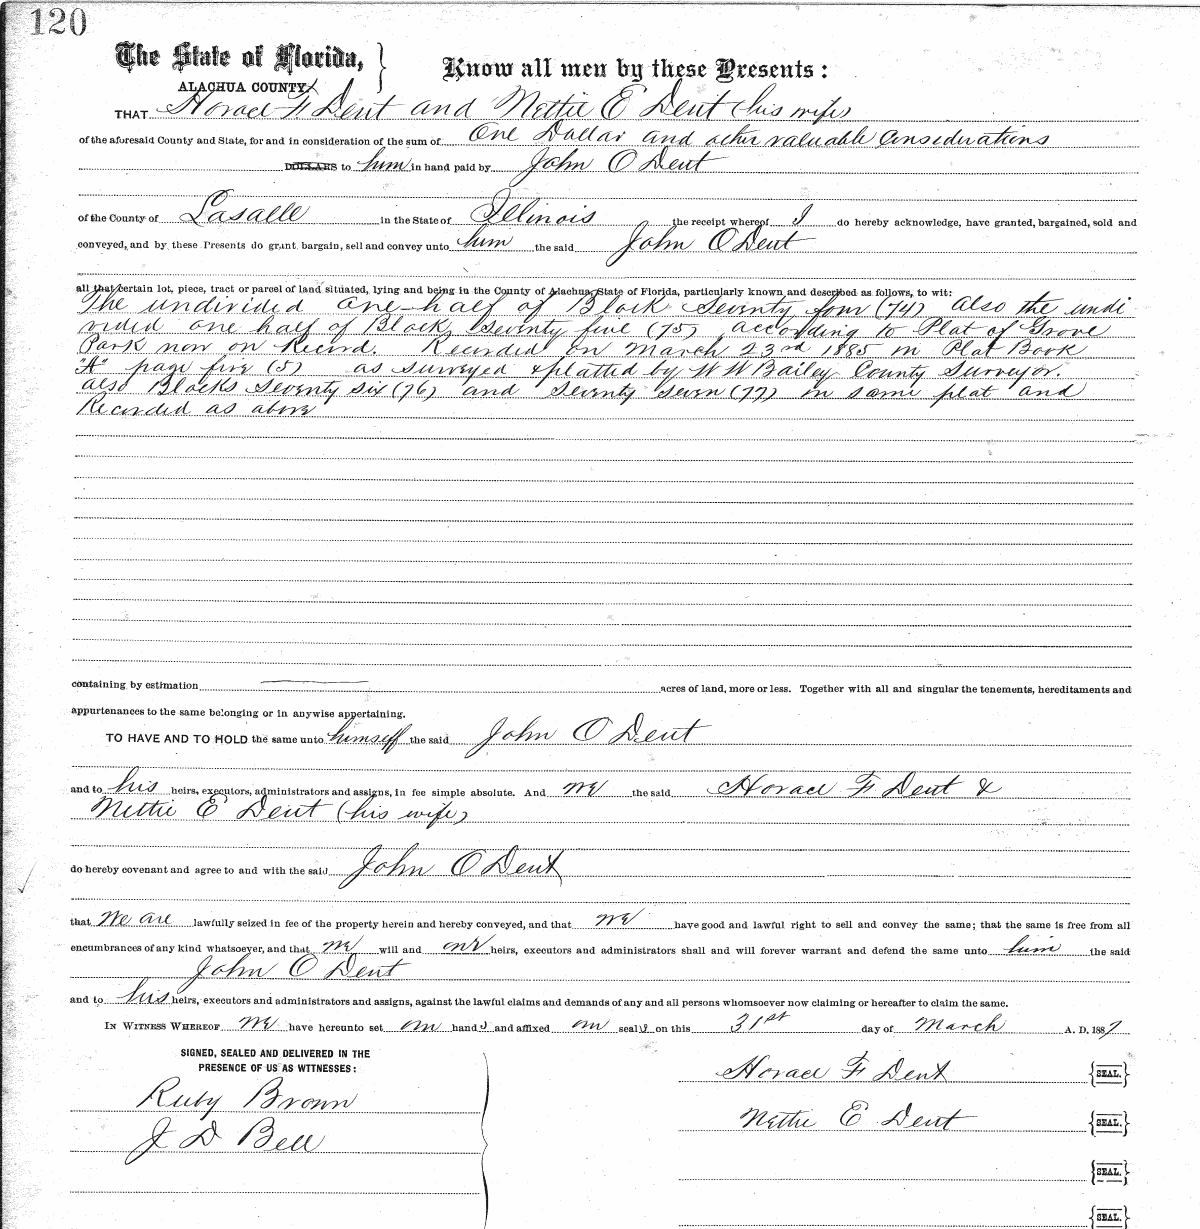 120
The State of Florida,
ALACHUA COUNTY.
Know all men by these Presents:
THAT Horace F Dent and Nettie E Dent (his wife)
of the aforesaid County and State, for and in consideration of the sum of One Dollar and other valuable Considerations
DOLLARS to him in hand paid by John O Dent
of the County of Lasalle in the State of Illinois the receipt whereof I do hereby acknowledge, have granted, bargained, sold and
conveyed, and by these Presents do grant, bargain, sell and convey unto him the said John O Dent
all that certain lot, piece, tract or parcel of land situated, lying and being in the County of Alachua, State of Florida, particularly known and described as follows, to wit:
The undivided one-half of Block Seventy four (74) Also the undi
vided one half of Block Seventy five (75) according to Plat of Grove
Park now on Record. Recorded on March 23rd 1885 in Plat Book
"A" page five (5) as surveyed & platted by W W Bailey County Surveyor.
also Blocks Seventy six (76) and Seventy Seven (77) in same plat and
Recorded as above
containing by estimation acres of land, more or less. Together with all and singular the tenements, hereditaments and
appurtenances to the same belonging or in anywise appertaining.
TO HAVE AND TO HOLD the same unto himself the said John O Dent
and to his heirs, executors, administrators and assigns, in fee simple absolute. And we the said Horace F Dent &
Nettie E Dent (his wife)
do hereby covenant and agree to and with the said John O Dent
that we are lawfully seized in fee of the property herein and hereby conveyed, and that we have good and lawful right to sell and convey the same; that the same is free from all
encumbrances of any kind whatsoever, and that we will and our heirs, executors and administrators shall and will forever warrant and defend the same unto him the said
John O Dent
and to his heirs, executors and administrators and assigns, against the lawful claims and demands of any and all persons whomsoever now claiming or hereafter to claim the same.
IN WITNESS WHEREOF we have hereunto set our hands and affixed our seals on this 31st day of March A. D. 1887
SIGNED, SEALED AND DELIVERED IN THE
PRESENCE OF US AS WITNESSES:
Horace F Dent SEAL.
Ruby Brown
Nettie E Dent SEAL.
J D Bell
SEAL.
SEAL.